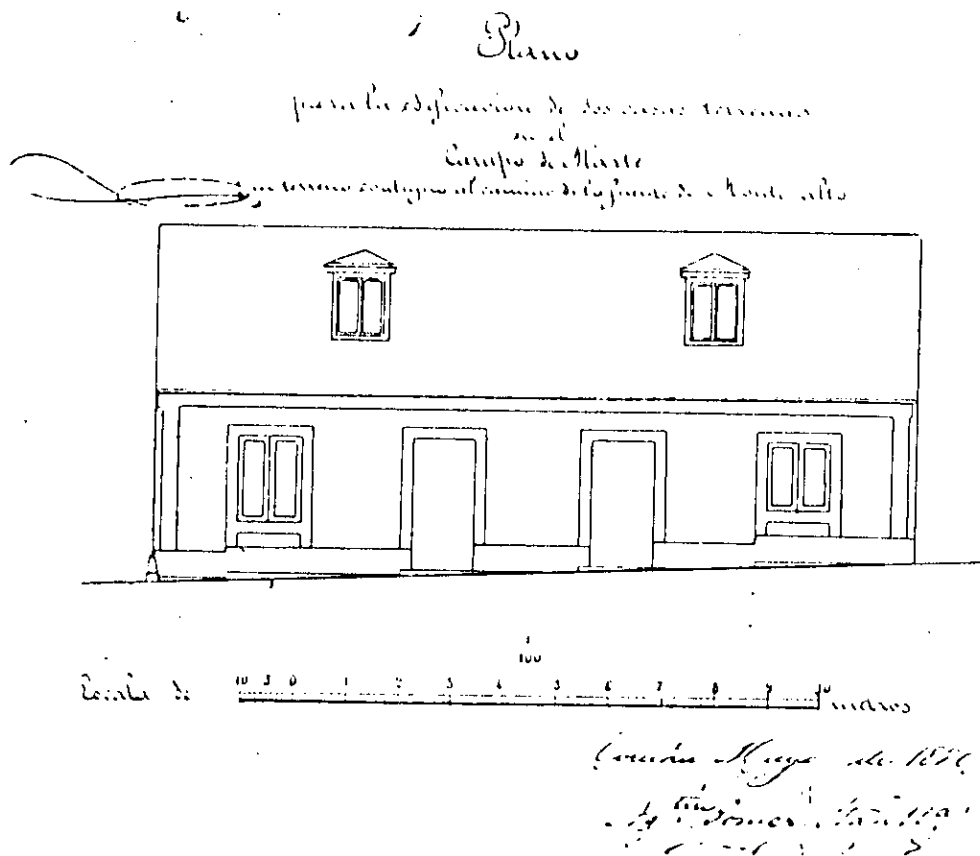 Plano
para la edificacion de dos casas terrenas
en el
Campo de Marte
en terreno contiguo al camino de la fuente de Monte alto
1
100
Escala de 10 5 0 1 2 3 4 5 6 7 8 9 10 metros
Coruña Mayo de